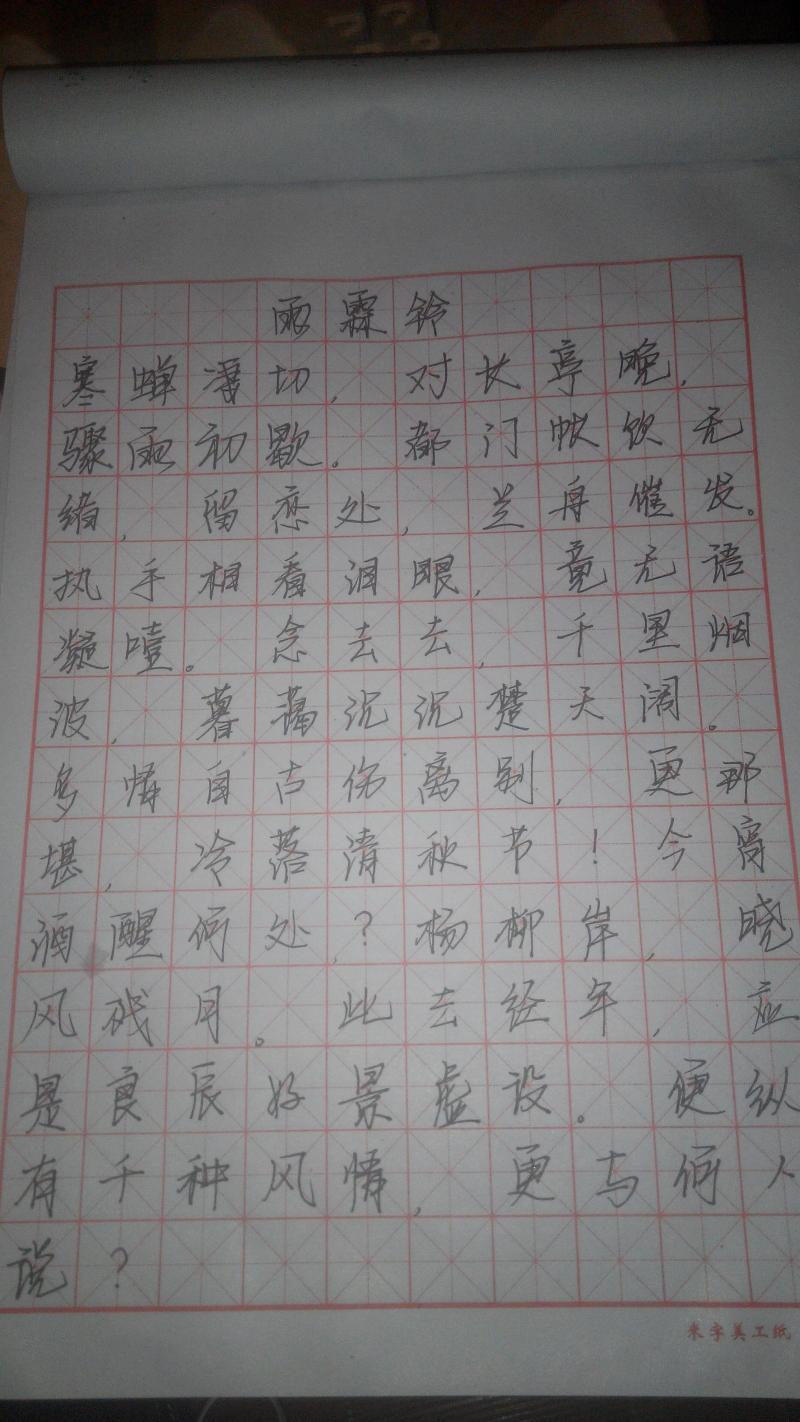 雨霖铃
寒蝉凄切，对长亭晚，
骤雨初歇。都门帐饮无
绪，留恋处，兰舟催发。
执手相看泪眼，竟无语
凝噎。念去去，千里烟
波，暮蔼沉沉楚天阔。
多情自古伤离别，更那
堪，冷落清秋节！今宵
酒醒何处？杨柳岸，晓
风残月。此去经年，应
是良辰好景虚设。便纵
有千种风情，更与何人
说？
米字美工纸